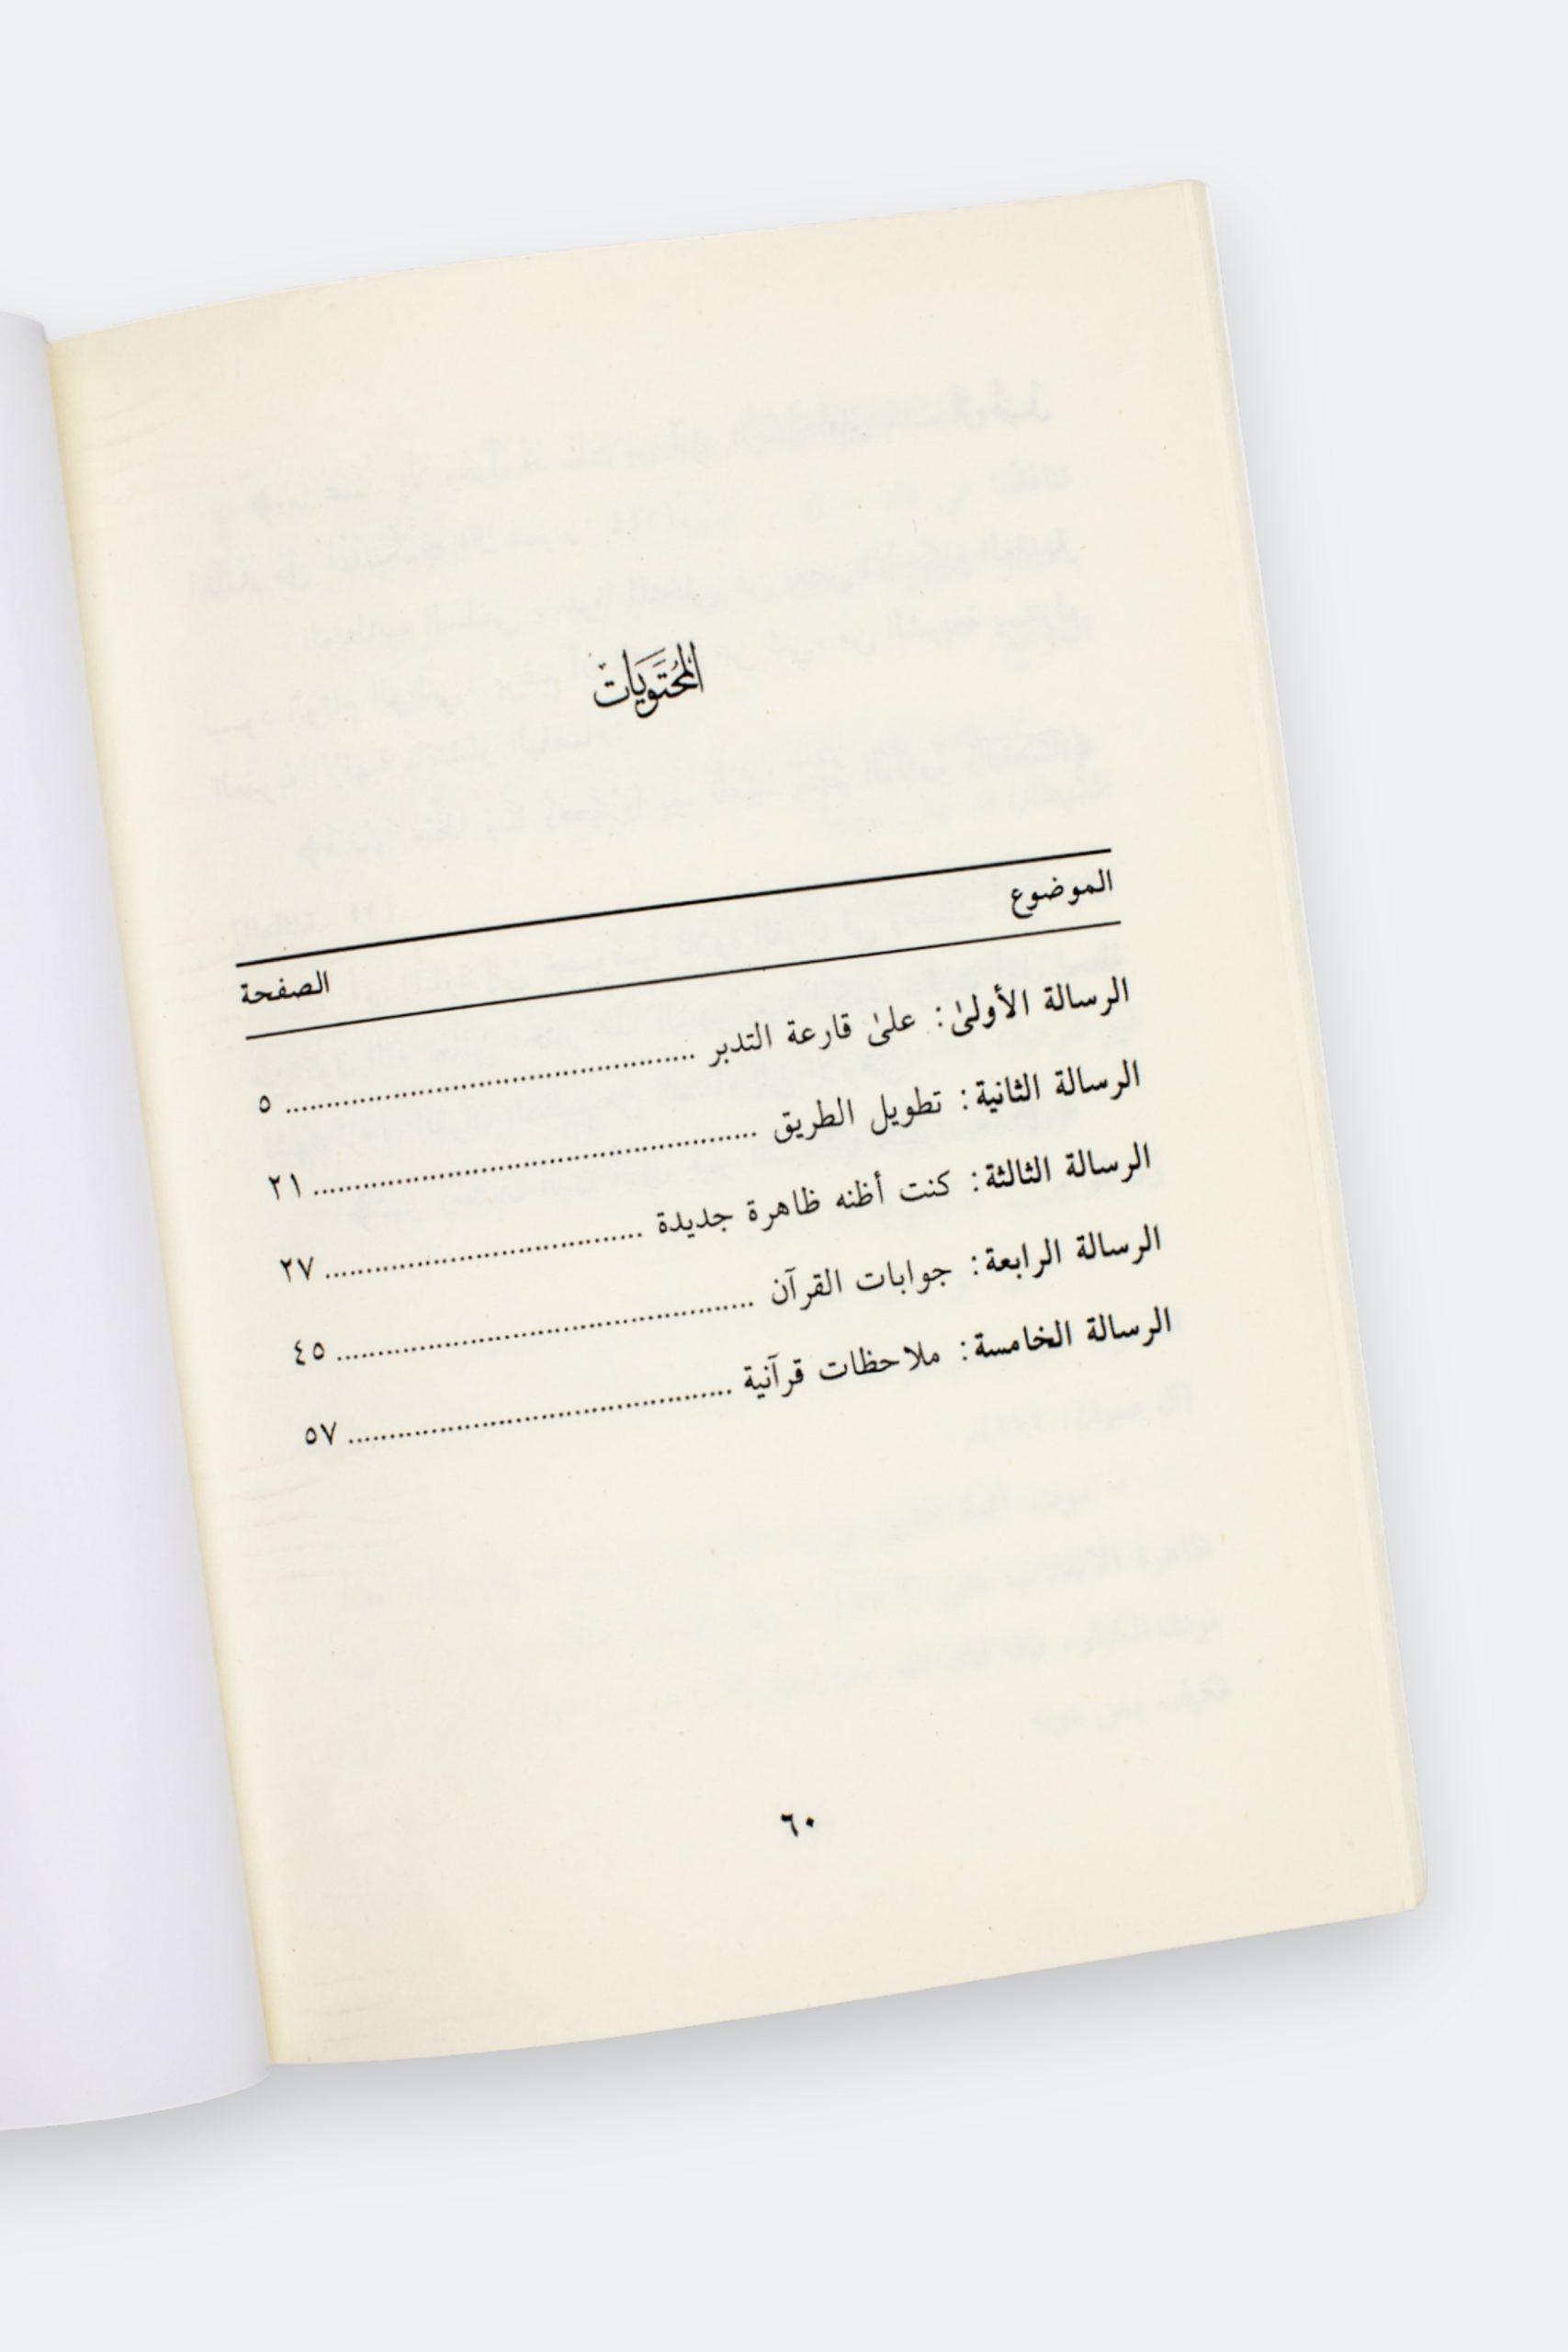 المُحتَوَيات
الموضوع الصفحة
الرسالة الأولىٰ: علىٰ قارعة التدبر ........................................ ٥
الرسالة الثانية: تطويل الطريق ........................................ ٢١
الرسالة الثالثة: كنت أظنه ظاهرة جديدة ........................................ ٢٧
الرسالة الرابعة: جوابات القرآن ........................................ ٤٥
الرسالة الخامسة: ملاحظات قرآنية ........................................ ٥٧
٦٠